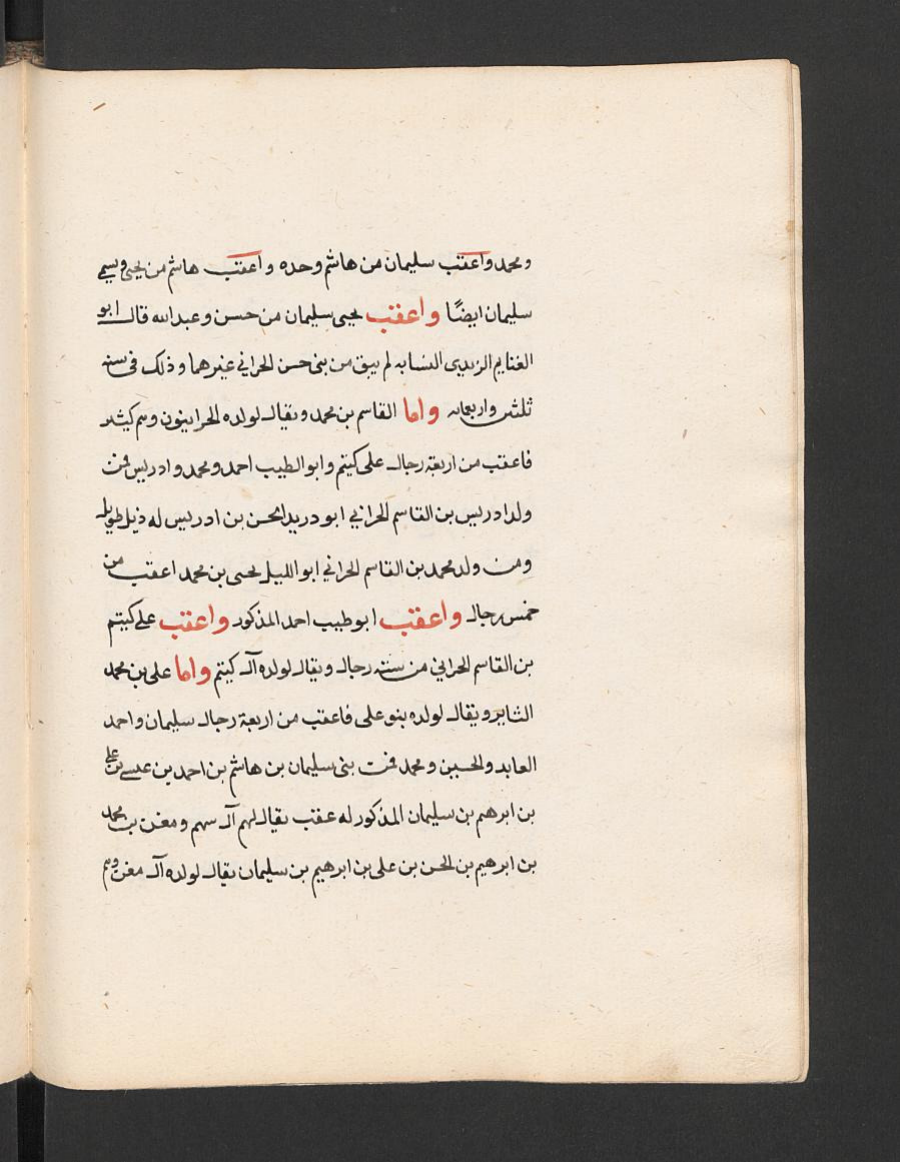 ومحمد واعقب سليمان من هاشم وحده واعقب هاشم من يحيى ويسمى
سليمان ايضًا واعقب يحيى سليمان من حسن وعبد الله قال ابو
الغنايم الزيدى النسابه لم يبق من بنى حسن الحراني غيرهما وذلك فى سنه
ثلثين واربعمايه واما القاسم بن محمد ويقال لولده الحرانيون وهم كيثر
فاعقب من اربعة رجال على كيتم وابو الطيب احمد ومحمد وادريس فمن
ولد ادريس بن القاسم الحراني ابو دريد الحسن بن ادريس له ذيل طويل
ومن ولد محمد بن القاسم الحراني ابو الليل يحيى بن محمد اعقب من
خمس رجال واعقب ابو طيب احمد المذكور واعقب على كيتم
بن القاسم الحراني من سته رجال ويقال لولده آل كيتم واما على بن محمد
الثاير ويقال لولده بنو على فاعقب من اربعة رجال سليمان واحمد
العابد والحسين ومحمد فمن بنى سليمان بن هاشم بن احمد بن عيسى بن على
بن ابرهيم بن سليمان المذكور له عقب يقال لهم آل سهم ومغن بن محمد
بن ابرهيم بن الحسن بن على بن ابرهيم بن سليمان يقال لولده آل مغن وهم